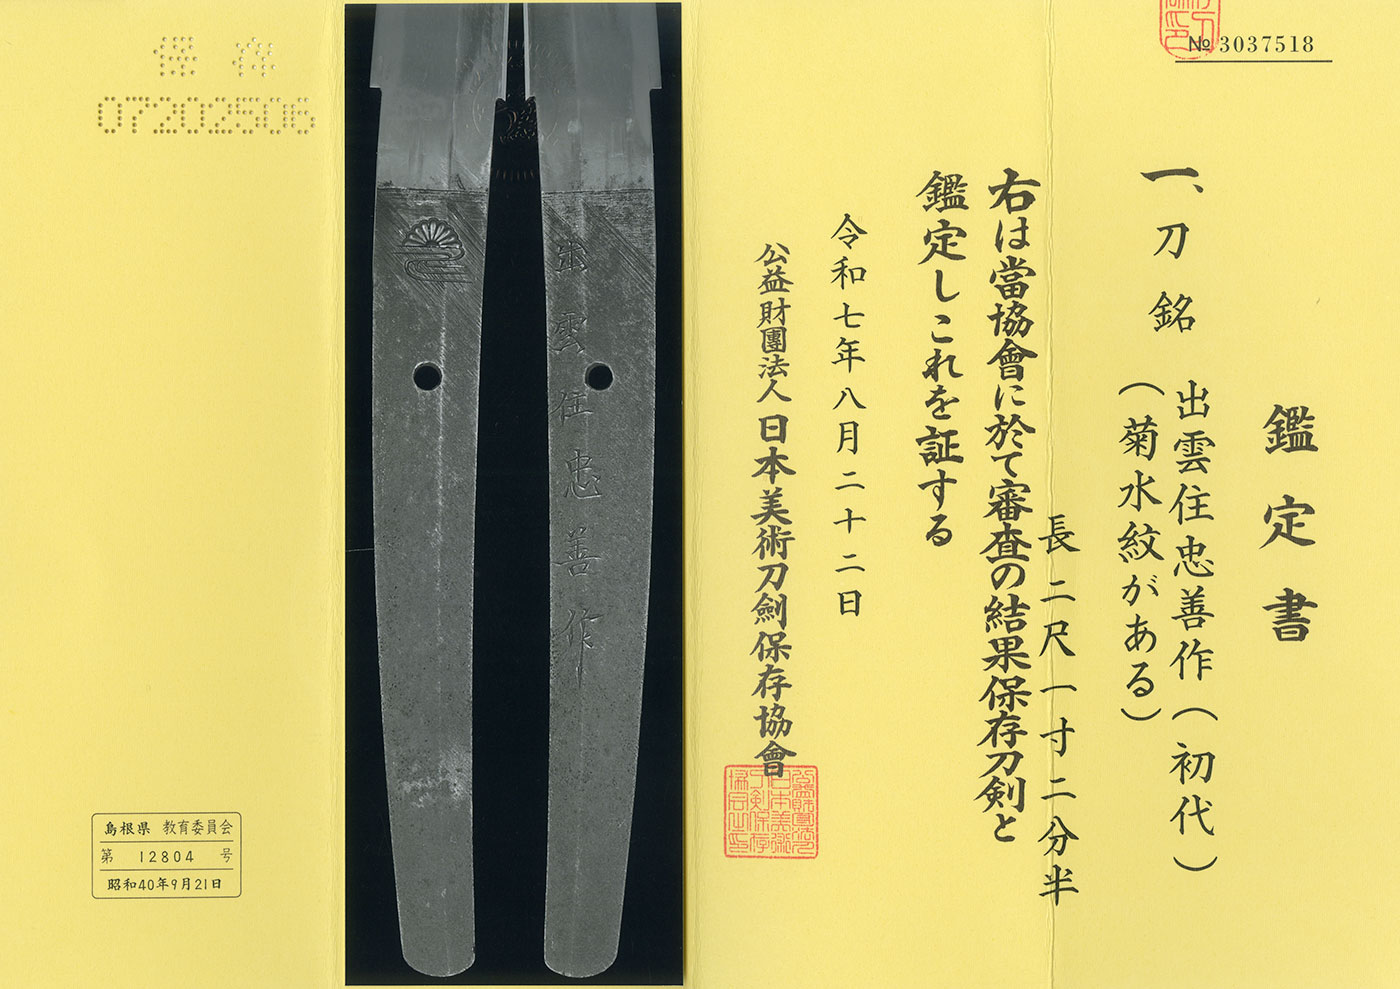 № 3037518
鑑定書
一、刀 銘 出雲住忠善作(初代)
(菊水紋がある)
長二尺一寸二分半
右は當協會に於て審査の結果保存刀剣と
鑑定しこれを証する
令和七年八月二十二日
公益財團法人日本美術刀劍保存協會
出雲住忠善作
保存
07202506
島根県 教育委員会
第 12804 号
昭和40年9月21日